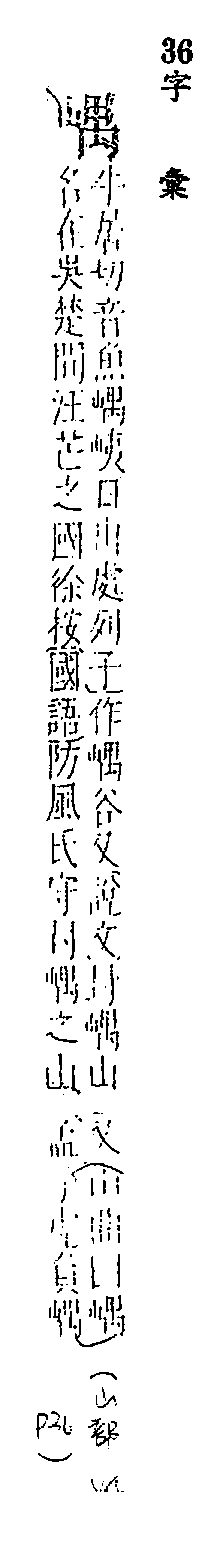 36字彙
嵎牛居切音魚嵎峓日出處列子作嵎谷又說文封嵎山
名在吳楚間汪芒之國徐按國語防風氏守封嵎之山又山曲曰嵎
孟子虎負嵎
(山部
P26)